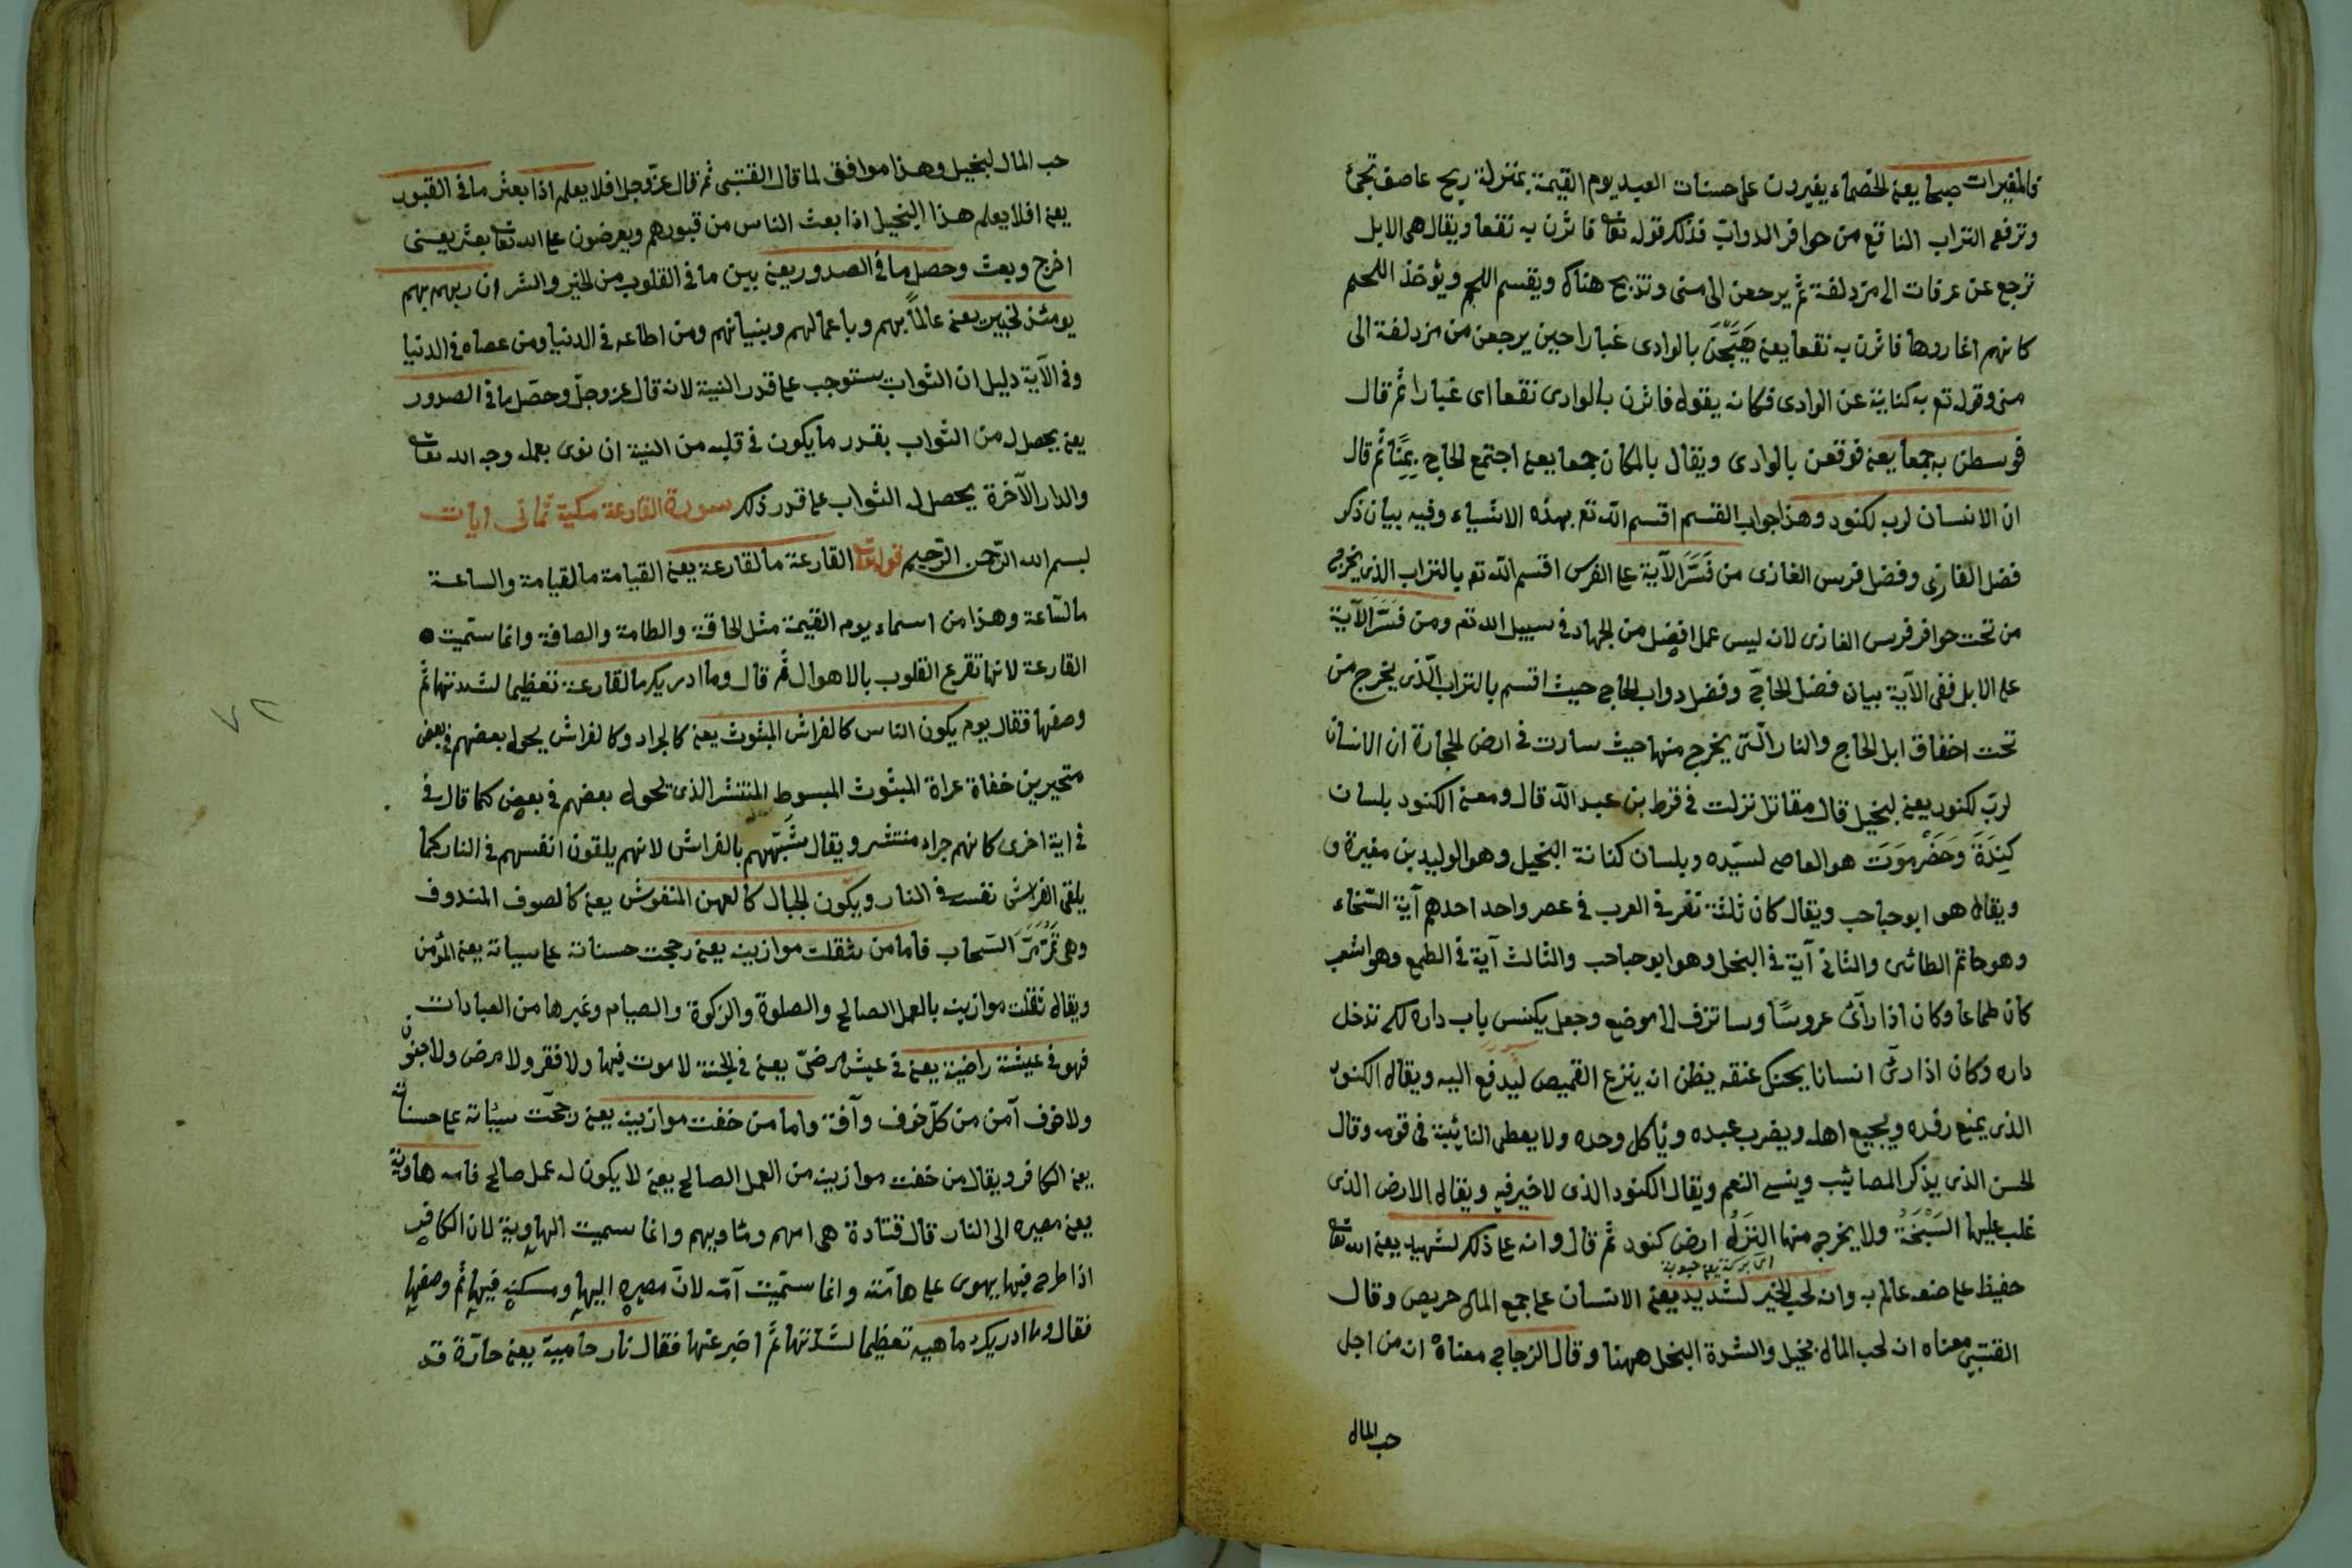 فالمغيرات صبحا يعنى الخصماء يغيرون على حسنات العبد يوم القيمة بمنزلة ريح عاصف تجئ
وترفع التراب الناقع من حوافر الدواب فذلك قوله تعا فاثرن به نقعا ويقال هى الابل
ترجع عن عرفات الى مزدلفة ثم يرجعن الى منى وتذبح هناك ويقسم اللحم ويؤخذ اللحم
كانهم اغاروها فاثرن به نقعا يعنى هَيَّجْنَ بالوادى غبارا حين يرجعن من مزدلفة الى
منى وقوله تع به كناية عن الوادى فكانه يقول فاثرن بالوادى نقعا اى غبارا ثم قال
فوسطن به جمعا يعنى فوقعن بالوادى ويقال بالمكان جمعا يعنى اجتمع الحاج بِمِنًا ثم قال
ان الانسان لربه لكنود وهذا جواب القسم اقسم الله تع بهذه الاشياء وفيه بيان ذكر
فضل الغازى وفضل فرس الغازى من فَسَّرَ الآية على الفرس اقسم الله تع بالتراب الذى يخرج
من تحت حوافر فرس الغازى لان ليس عمل افضل من الجهاد فى سبيل الله تع ومن فَسَّرَ الآية
على الابل ففى الآية بيان فضل الحاج وفضل دواب الحاج حيث اقسم بالتراب الّذى يخرج من
تحت اخفاق ابل الحاج والنار الّتى يخرج منها حيث سارت فى ارض الحجارة ان الانسان
لربّه لكنود يعنى لبخيل قال مقاتل نزلت فى قرط بن عبد الله قال ومعنى الكنود بلسان
كِنِدَةَ وَحَضَرْموَتَ هو العاصى لسيّده وبلسان كنانة البخيل وهو الوليد بن مغيرة و
ويقال هو ابو حباحب ويقال كان ثلثة نفر فى العرب فى عصر واحد احدهم آية السّخاء
وهو حاتم الطائى والثانى آية فى البخل وهو ابو حباحب والثالث آية فى الطمع وهو اشعب
كان طماعا وكان اذا رآئ عروسًا وسا تزف الى موضع وجعل يكنس باب داره لكى تدخل
داره وكان اذا رئ انسانا يحتك عنقه يظن انه ينزع القميص لَيَدفَع اليه ويقال الكنود
الذى يمنع رفده ويجيع اهله ويضرب عبده ويأكل وحده ولا يعطى النائبة فى قومه وقال
الحسن الذى يذكر المصائب وينسى النعم ويقال الكنود الذى لا خير فيه ويقال الارض الذى
غلب عليها السَّبْخَةُ ولا يخرج منها النَزَلُ ارض كنود ثم قال وانه على ذلك لشهيد يعنى الله تعا
حفيظ على صنعه عالم به وانه لحب الخير لشديد يعنى الانسان على جمع المال حريص وقال
القتبى معناه انه لحب المال بخيل والشدة البخل ههنا وقال الزجاج معناه انه من اجل
حب المال
حب المال لبخيل وهذا موافق لما قال القتبى ثم قال عزّ وجل افلا يعلم اذا بعثر ما فى القبور
يعنى افلا يعلم هذا البخيل اذا بعث الناس من قبورهم ويعرضون على الله تعا بعثر يعنى
اخرج وبعث وحصل ما فى الصدور يعنى بين ما فى القلوب من الخير والشر ان ربهم بهم
يومئذ لخبير يعنى عالمًا بهم وباعمالهم وبنياتهم ومن اطاعه فى الدنيا ومن عصاه فى الدنيا
وفى الآية دليل ان الثواب يستوجب على قدر النية لانه قال عز وجلّ وحصّل ما فى الصدور
يعنى يحصل له من الثواب بقدر ما يكون فى قلبه من النية ان نوى بعمله وجه الله تعا
والدار الآخرة يحصل له الثواب على قدر ذلك سورة القارعة مكية ثمانى ايات
بسم الله الرّحمن الرّحيم قوله تعا القارعة ما القارعة يعنى القيامة ما القيامة والساعة
ما السّاعة وهذا من اسماء يوم القيمة مثل الحاقة والطامة والصاقة وانما سمّيت
القارعة لانها تقرع القلوب بالاهوال ثم قال وما ادريك ما القارعة تعظيما لشدتها ثم
وصفها فقال يوم يكون الناس كالفراش المبثوث يعنى كالجراد وكالفراش يجول بعضهم فى بعض
متحيرين خفاة عراة المبثوث المبسوط المنتشر الذى يجول بعضهم فى بعض كما قال فى
فى اية اخرى كانهم جراد منتشر ويقال شَبَّهَهم بالفراش لانهم يلقون انفسهم فى النار كما
يلقى الفراش نفسه فى النار ويكون الجبال كالعهن المنفوش يعنى كالصوف المندوف
وهى تَمُرُّ مَرَّ السّحاب فاما من ثقلت موازينه يعنى رجحت حسناته على سياته يعنى المؤمن
ويقال ثقلت موازينه بالعمل الصالح والصلوة والزكوة والصيام وغيرها من العبادات
فهو فى عيشة راضية يعنى فى عيش مرضىّ يعنى فى الجنة لا موت فيها ولا فقر ولا مرض ولا جنون
ولا خوف آمن من كلّ خوف وآفة واما من خفت موازينه يعنى رجحت سيئاته على حسناته
يعنى الكافر ويقال من خفت موازينه من العمل الصالح يعنى لا يكون له عمل صالح فامه هاوية
يعنى مصيره الى النار قال قتادة هى امهم ومأويهم وانما سميت الهاوية لان الكافر
اذا طرح فيها يهوى على هامّته وانما سمّيت امّه لانّ مصيره اليها ومسكنه فيها ثم وصفها
فقال وما ادريك ماهيه تعظيما لشدّتها ثم اخبر عنها فقال نار حامية يعنى حارّة قد